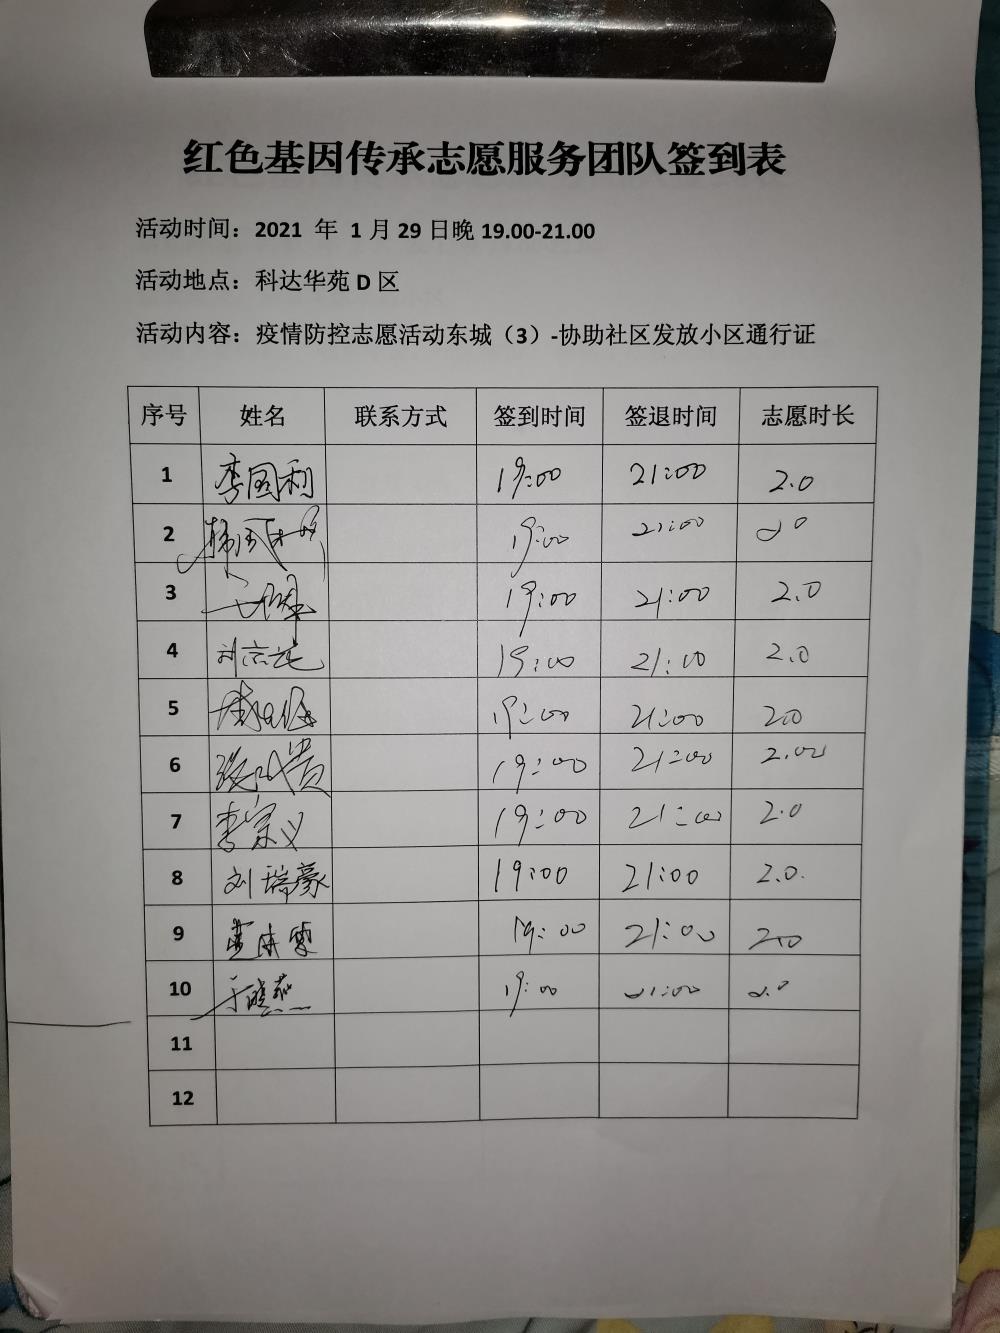 红色基因传承志愿服务团队签到表
活动时间：2021 年 1月29日晚19.00-21.00
活动地点：科达华苑D区
活动内容：疫情防控志愿活动东城（3）-协助社区发放小区通行证
序号 姓名 联系方式 签到时间 签退时间 志愿时长
1 李国利 19:00 21:00 2.0
2 19:00 21:00 2.0
3 19:00 21:00 2.0
4 19:00 21:00 2.0
5 19:00 21:00 2.0
6 19:00 21:00 2.00
7 李宗义 19:00 21:00 2.0
8 刘瑞豪 19:00 21:00 2.0.
9 19:00 21:00 2.0
10 于晓燕 19:00 21:00 2.0
11
12